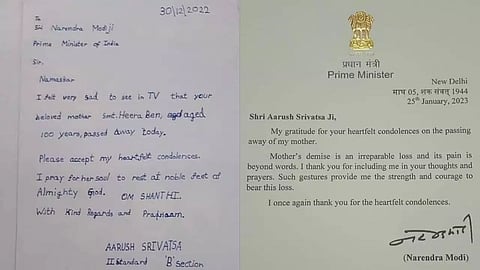 30/12/2022
To
Sri Narendra Modiji
Prime Minister of India
Sir,
Namaskar
I felt very sad to see in TV that your
beloved mother Smt. Heera Ben, aged
100 years, passed away today.
Please accept my heartfelt condolences.
I pray for her soul to rest at noble feet of
Almighty God. OM SHANTHI.
With Kind Regards and Pranaam.
AARUSH SRIVATSA
II Standard 'B' Section
प्रधान मंत्री
Prime Minister
New Delhi
माघ 05, शक संवत् 1944
25th January, 2023
Shri Aarush Srivatsa Ji,
My gratitude for your heartfelt condolences on the passing
away of my mother.
Mother's demise is an irreparable loss and its pain is
beyond words. I thank you for including me in your thoughts and
prayers. Such gestures provide me the strength and courage to
bear this loss.
I once again thank you for the heartfelt condolences.
(Narendra Modi)